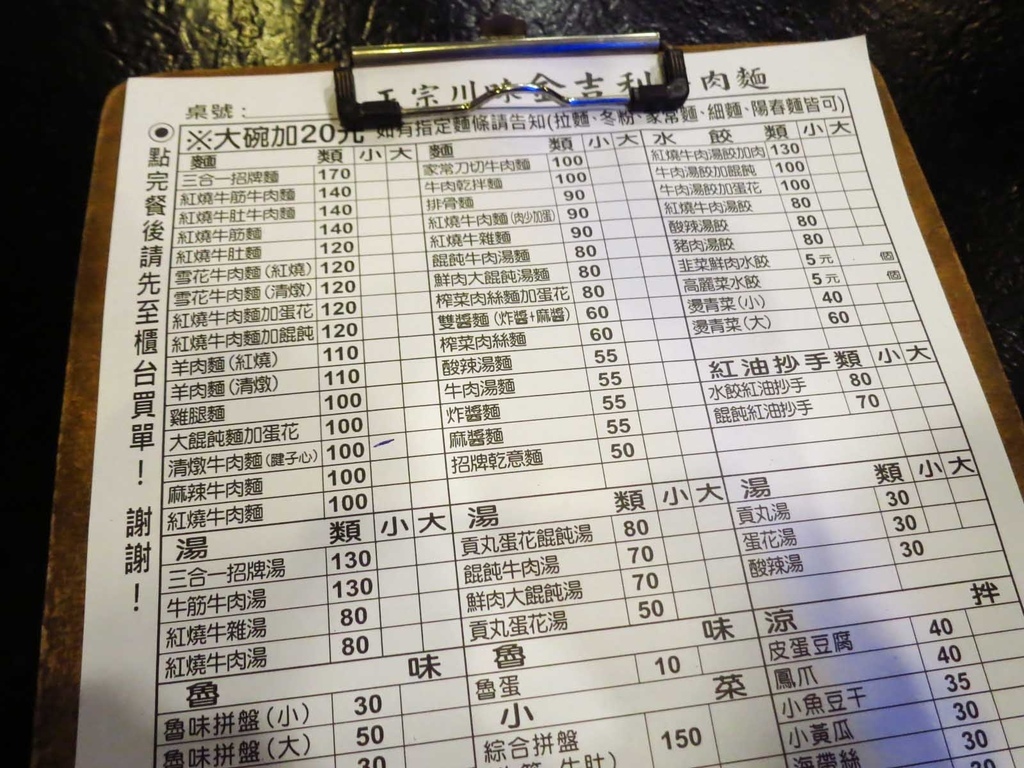 正宗川味金吉利 肉麵
桌號：
※大碗加20元 如有指定麵條請告知(拉麵、冬粉、家常麵、細麵、陽春麵皆可)
◉點完餐後請先至櫃台買單！ 謝謝！
麵 類 小 大
三合一招牌麵 170
紅燒牛筋牛肉麵 140
紅燒牛肚牛肉麵 140
紅燒牛筋麵 140
紅燒牛肚麵 120
雪花牛肉麵(紅燒) 120
雪花牛肉麵(清燉) 120
紅燒牛肉麵加蛋花 120
紅燒牛肉麵加餛飩 120
羊肉麵(紅燒) 110
羊肉麵(清燉) 110
雞腿麵 100
大餛飩麵加蛋花 100
清燉牛肉麵(腱子心) 100
麻辣牛肉麵 100
紅燒牛肉麵 100
麵 類 小 大
家常刀切牛肉麵 100
牛肉乾拌麵 100
排骨麵 90
紅燒牛肉麵(肉少加蛋) 90
紅燒牛雜麵 90
餛飩牛肉湯麵 80
鮮肉大餛飩湯麵 80
榨菜肉絲麵加蛋花 80
雙醬麵(炸醬+麻醬) 60
榨菜肉絲麵 60
酸辣湯麵 55
牛肉湯麵 55
炸醬麵 55
麻醬麵 55
招牌乾意麵 50
水餃 類 小 大
紅燒牛肉湯餃加肉 130
牛肉湯餃加餛飩 100
牛肉湯餃加蛋花 100
紅燒牛肉湯餃 80
酸辣湯餃 80
豬肉湯餃 80
韭菜鮮肉水餃 5元 個
高麗菜水餃 5元 個
燙青菜(小) 40
燙青菜(大) 60
紅油抄手類 小 大
水餃紅油抄手 80
餛飩紅油抄手 70
湯 類 小 大
三合一招牌湯 130
牛筋牛肉湯 130
紅燒牛雜湯 80
紅燒牛肉湯 80
湯 類 小 大
貢丸蛋花餛飩湯 80
餛飩牛肉湯 70
鮮肉大餛飩湯 70
貢丸蛋花湯 50
湯 類 小 大
貢丸湯 30
蛋花湯 30
酸辣湯 30
魯 味
魯味拼盤(小) 30
魯味拼盤(大) 50
30
魯 味
魯蛋 10
小 菜
綜合拼盤 150
牛肚)
涼 拌
皮蛋豆腐 40
鳳爪 40
小魚豆干 35
小黃瓜 30
海帶絲 30